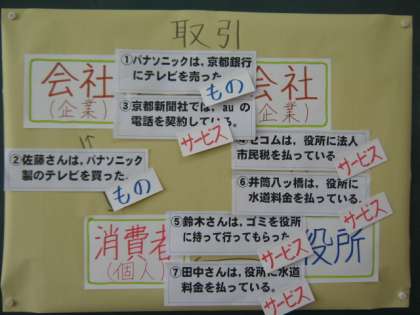 取引
会社
(企業)
①パナソニックは、京都銀行
にテレビを売った
もの
会社
(企業)
③京都新聞社では、auの
電話を契約している。
サービス
②佐藤さんは、パナソニック
製のテレビを買った
もの
④セコムは、役所に法人
市民税を払っている
サービス
⑥井筒八ッ橋は、役所に
水道料金を払っている。
サービス
消費者
(個人)
⑤鈴木さんは、ゴミを役所
に持って行ってもらった
サービス
役所
⑦田中さんは、役所に水道
料金を払っている。
サービス